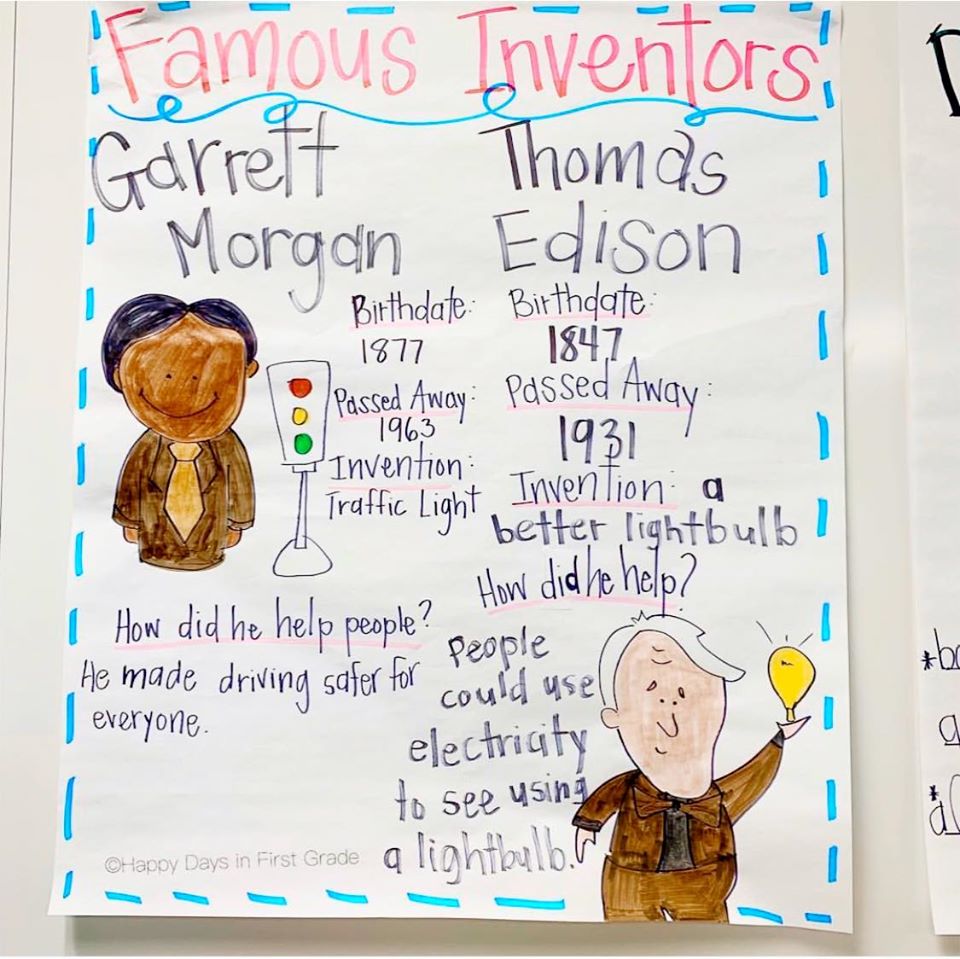 Famous Inventors
Garrett
Morgan
Birthdate:
1877
Passed Away:
1963
Invention:
Traffic Light
How did he help people?
He made driving safer for
everyone.
Thomas
Edison
Birthdate:
1847
Passed Away:
1931
Invention: a
better lightbulb
How did he help?
People
could use
electricity
to see using
a lightbulb.
©Happy Days in First Grade